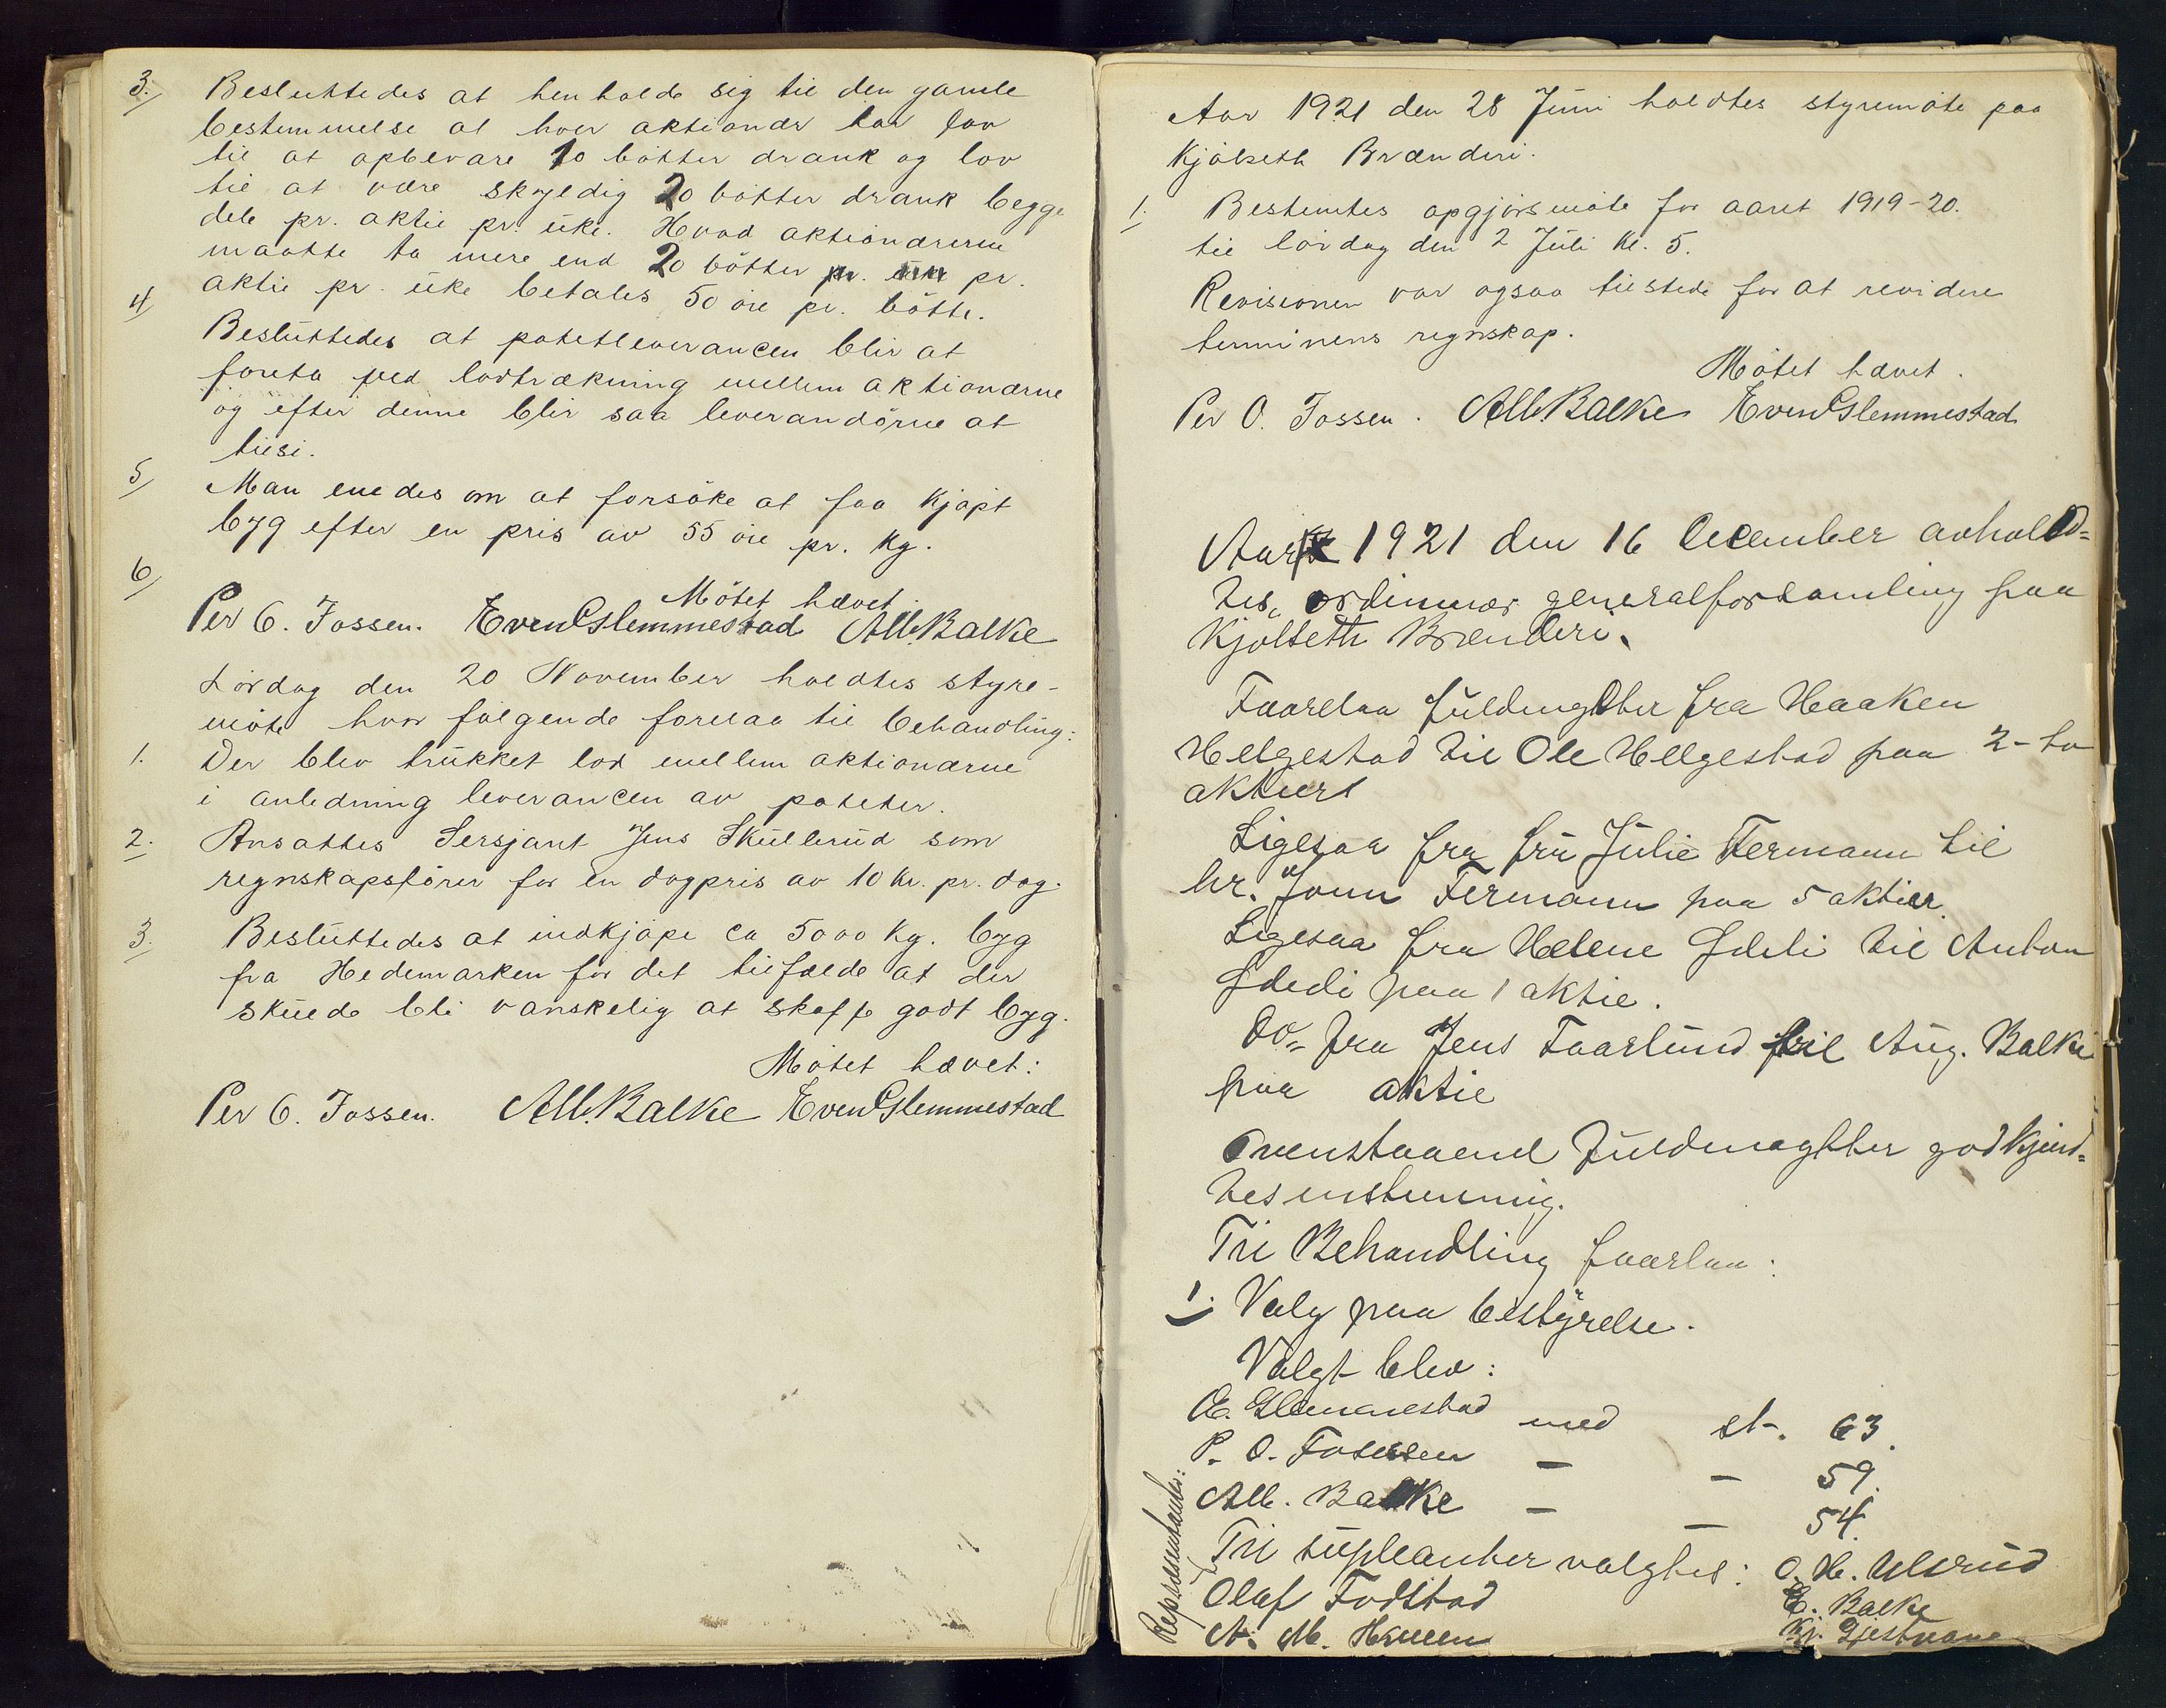 3. Besluttedes at henholde sig til den gamle
bestemmelse at hver aktionær har lov
til at opbevare 10 bøtter drank og lov
til at være skyldig 20 bøtter drank begge
dele pr. aktie pr. uke. Hvad aktionærerne
maatte ta mere end 20 bøtter pr. pr.
aktie pr. uke betales 50 øre pr. bøtte.
4 Besluttedes at potetleverancen blir at
foreta ved lodtrækning mellem aktionærne
og efter denne blir saa leverandørne at
tilsi.
5 Man enedes om at forsøke at faa kjøpt
byg efter en pris av 55 øre pr. kg.
6
Møtet hævet.
Per O. Fossen. Even Glemmestad Alb. Balke
Lørdag den 20 November holdtes styre-
møte hvor følgende forelaa til behandling:
1. Der blev trukket lod mellem aktionærne
i anledning leverancen av poteter.
2. Ansattes Sersjant Jens Skullerud som
regnskapsfører for en dagpris av 10 kr. pr. dag.
3. Besluttedes at indkjøpe ca 5000 kg. byg
fra Hedemarken for det tilfælde at der
skulde bli vanskelig at skaffe godt byg.
Møtet hævet:
Per O. Fossen. Alb. Balke Even Glemmestad
Aar 1921 den 28 Juni holdtes styremøte paa
Kjølseth Brænderi.
1. Bestemtes opgjørsmøte for aaret 1919-20.
til lørdag den 2 Juli kl. 5.
Revisionen var ogsaa tilstede for at revidere
terminens regnskap.
Møtet hævet.
Per O. Fossen. Alb. Balke Even Glemmestad
Aar 1921 den 16 December avhold=
tes ordinær generalforsamling paa
Kjølseth Brænderi.
Faarelaa fuldmagther fra Haaken
Helgestad til Ole Helgestad paa 2-to
aktiers
Ligesaa fra fru Julie Fermann til
hr. Fermann paa 5 aktier.
Ligesaa fra Helene til Anton
paa 1 aktie.
Do= fra Jens Faarlund til Aug. Balke
paa aktie
Ovenstaaend fuldmagther godkjend=
tes enstemmig.
Til Behandling faarlaa:
1. Valg paa bestyrelse.
Valgt blev:
E. Glemmestad med st. 63.
P. O. Fossen — — 59.
Alb. Balke — — 54.
Til supleanter valgtes: O. H. Ullerud
Representanter:
Olaf Fodstad E. Balke
A. M. Hansen Kr. Gjestvang